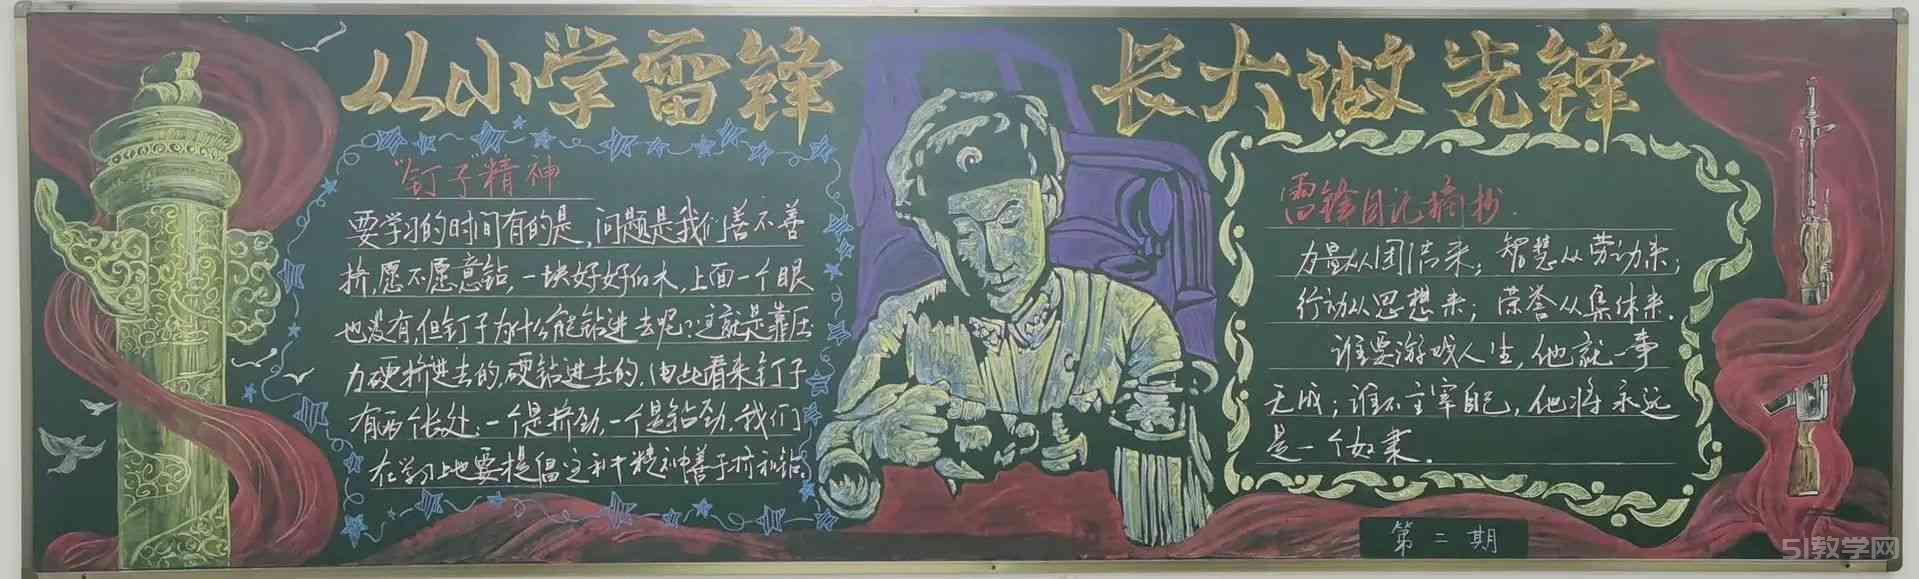 从小学雷锋 长大做先锋
"钉子"精神
要学习的时间有的是,问题是我们善不善
挤,愿不愿意钻,一块好好的木,上面一个眼
也没有,但钉子为什么能钻进去呢?这就是靠压
力硬挤进去的,硬钻进去的,由此看来钉子
有两个长处:一个是挤劲,一个是钻劲,我们
在学习上也要提倡这种精神善于挤和钻。
雷锋日记摘抄.
力量从团结来;智慧从劳动来;
行动从思想来;荣誉从集体来.
谁要游戏人生,他就一事
无成;谁不主宰自己,他将永远
是一个奴隶.
第二期
51教学网